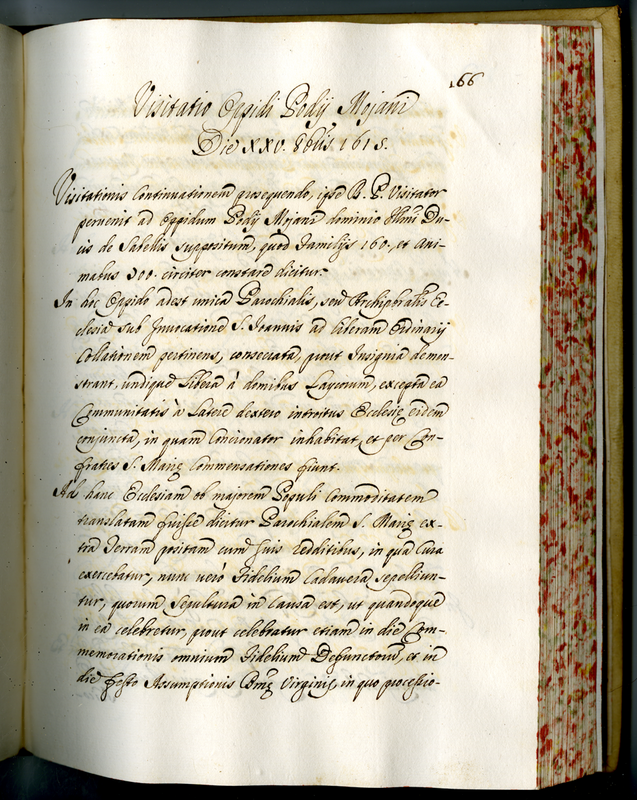 166
Visitatio Oppidi Podij Mojani
Die XXV. 8bris 1615.
Visitationis Continuationem prosequendo, ipse R. P. Visitator
pervenit ad Oppidum Podij Mojani dominio Illmi Du-
cis de Sabellis suppositum, quod familijs 160, et ani-
mabus 900 circiter constare dicitur.
In hoc Oppido adest unica Parochialis, seu Archipbralis Ec-
clesia sub Invocatione S. Joannis ad liberam Ordinarij
Collationem pertinens, consecrata, prout Insignia demon-
strant, undique libera à domibus Laycorum, excepta ea
Communitatis à latere dextero introitus Ecclesię eidem
conjuncta, in quam Concionator inhabitat, et per Con-
fratres S. Marię Commensationes fiunt.
Ad hanc Ecclesiam ob majorem Populi Commoditatem
translatam fuisse dicitur Parochialem S. Marię ex-
tra Terram positam cum suis redditibus, in qua Cura
exercebatur, nunc verò Fidelium Cadavera sepelliun-
tur, quorum Sepultura in causa est, ut quandoque
in ea celebretur, prout celebratur etiam in die Com-
memorationis omnium Fidelium Defunctorum, et in
die festo Assumptionis Bmę Virginis, in quo processio-